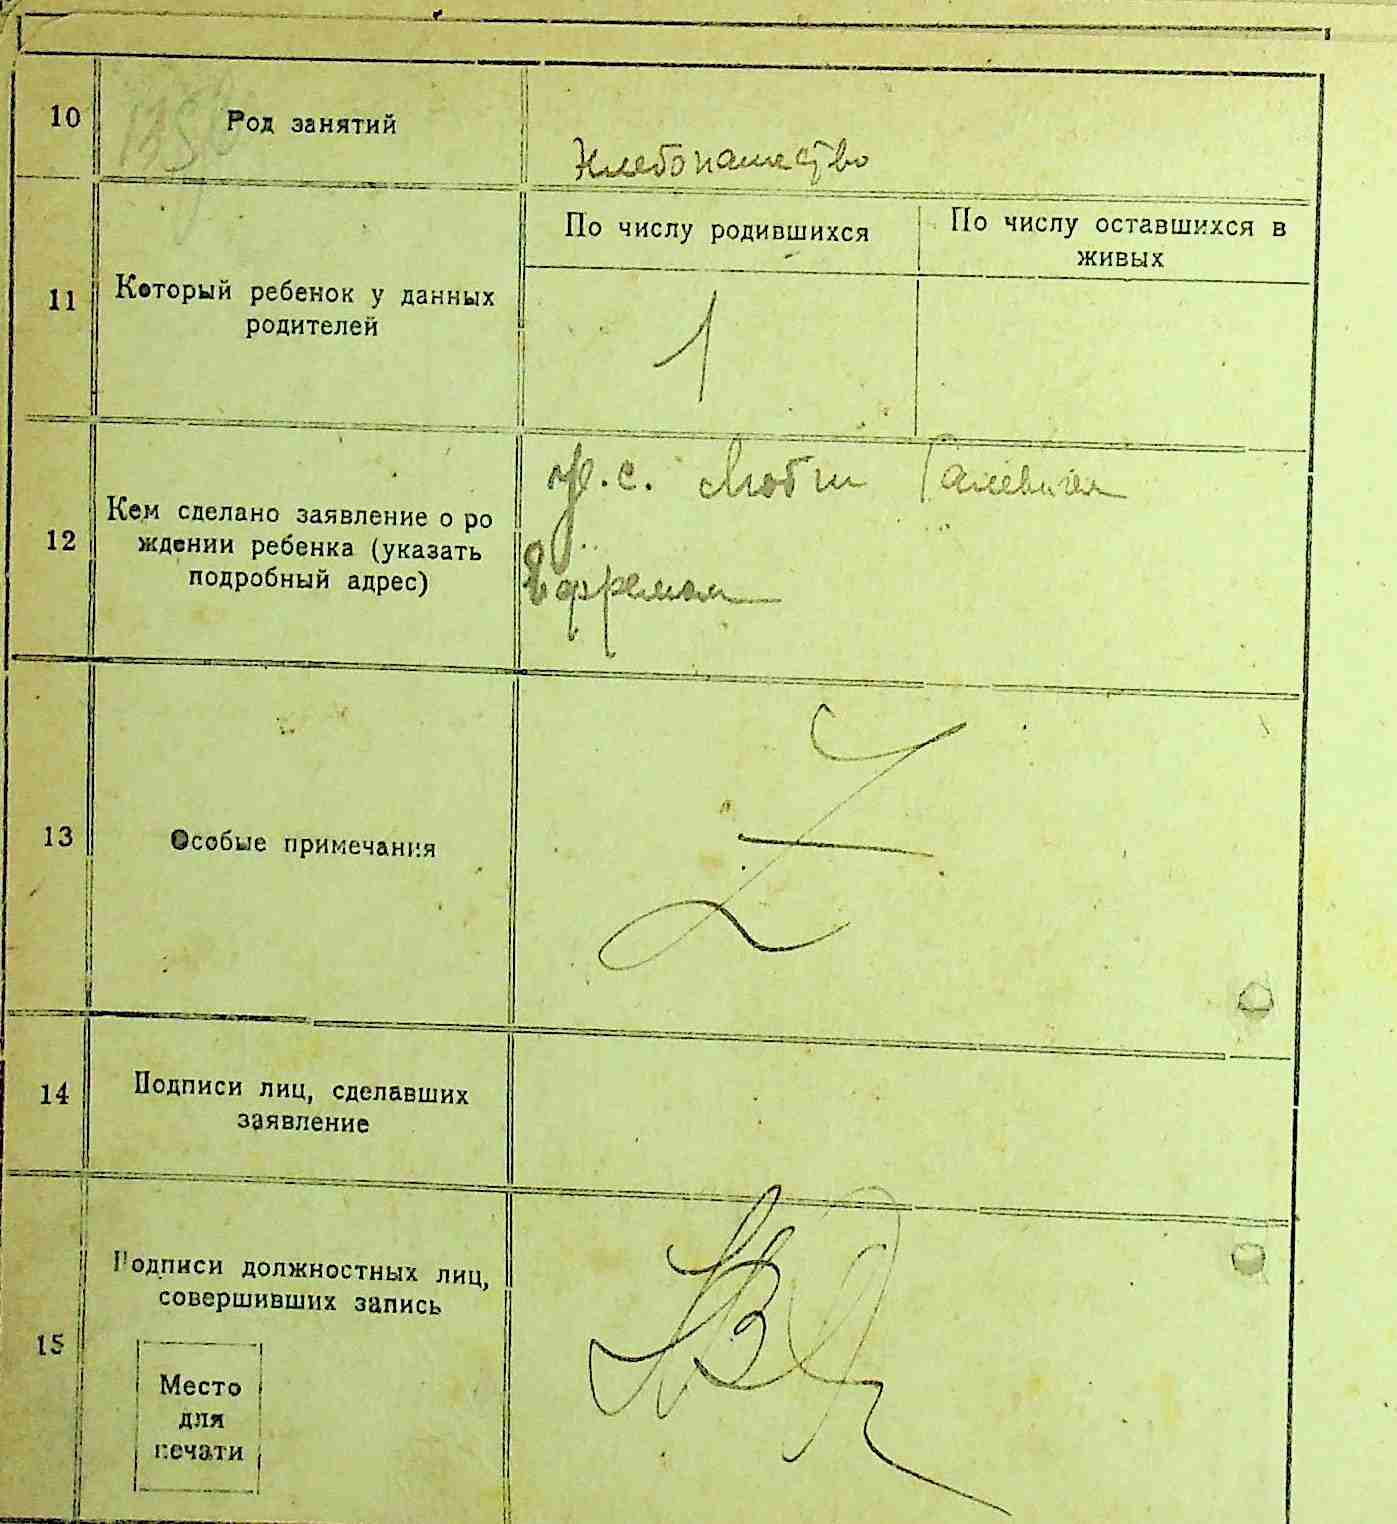 10
Род занятий
Хлебопашество
11
Который ребенок у данных
родителей
По числу родившихся
По числу оставшихся в
живых
1
12
Кем сделано заявление о ро
ждении ребенка (указать
подробный адрес)
с.
13
Особые примечания
Z
14
Подписи лиц, сделавших
заявление
15
Подписи должностных лиц,
совершивших запись
Место
для
печати